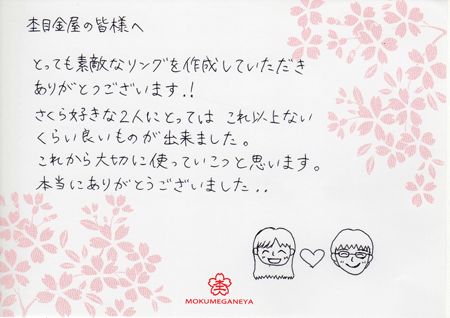 杢目金屋の皆様へ
とっても素敵なリングを作成していただき
ありがとうございます.!
さくら好きな2人にとっては これ以上ない
くらい良いものが出来ました。
これから大切に使っていこうと思います。
本当にありがとうございました..
MOKUMEGANEYA